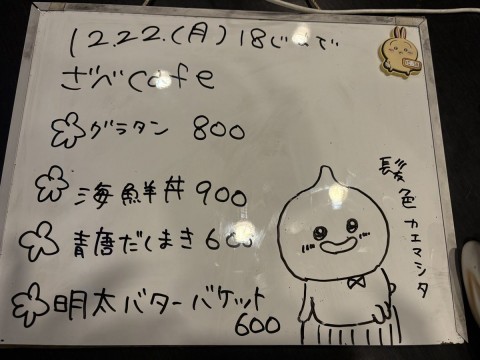 12.22.(月)18じまで
ざべcafe
グラタン 800
海鮮丼 900
青唐だしまき 600
明太バターバケット
600
髪色カエマシタ